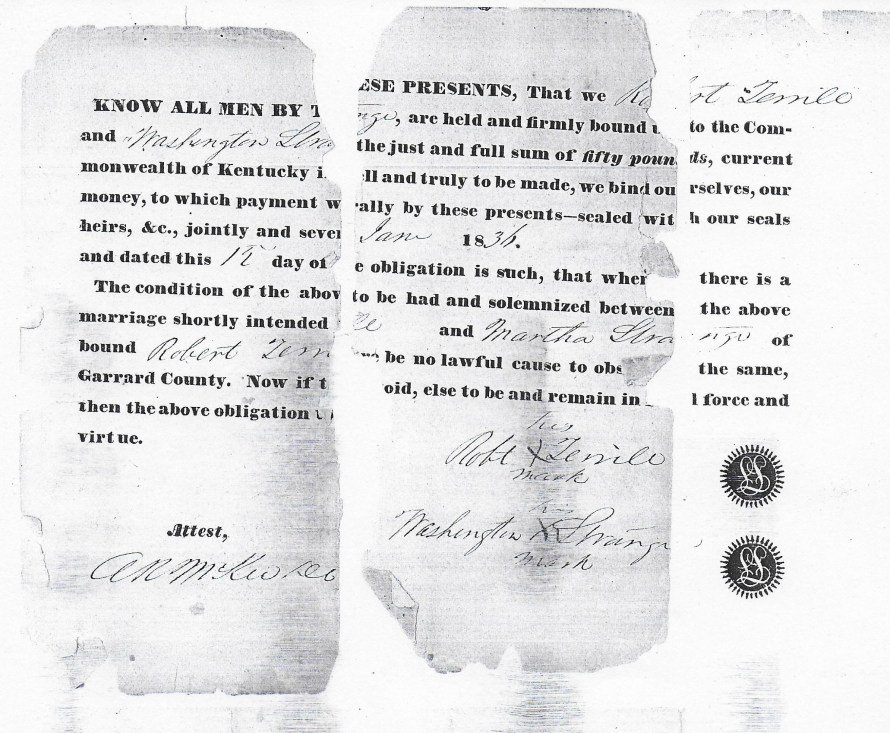 KNOW ALL MEN BY T ESE PRESENTS, That we Ro rt Terrill
and Washington Stra nge, are held and firmly bound u to the Com-
monwealth of Kentucky i the just and full sum of fifty poun ds, current
money, to which payment w ll and truly to be made, we bind ou rselves, our
heirs, &c., jointly and sever rally by these presents—sealed wit h our seals
and dated this 12 day of Jany 1836.
The condition of the abov e obligation is such, that wher there is a
marriage shortly intended to be had and solemnized between the above
bound Robert Terri ll and Martha Stra nge of
Garrard County. Now if t be no lawful cause to obs the same,
then the above obligation oid, else to be and remain in l force and
virtue.
his
Robt X Terrill
mark
Attest,
his
Washington X Strange
mark
A R McKee